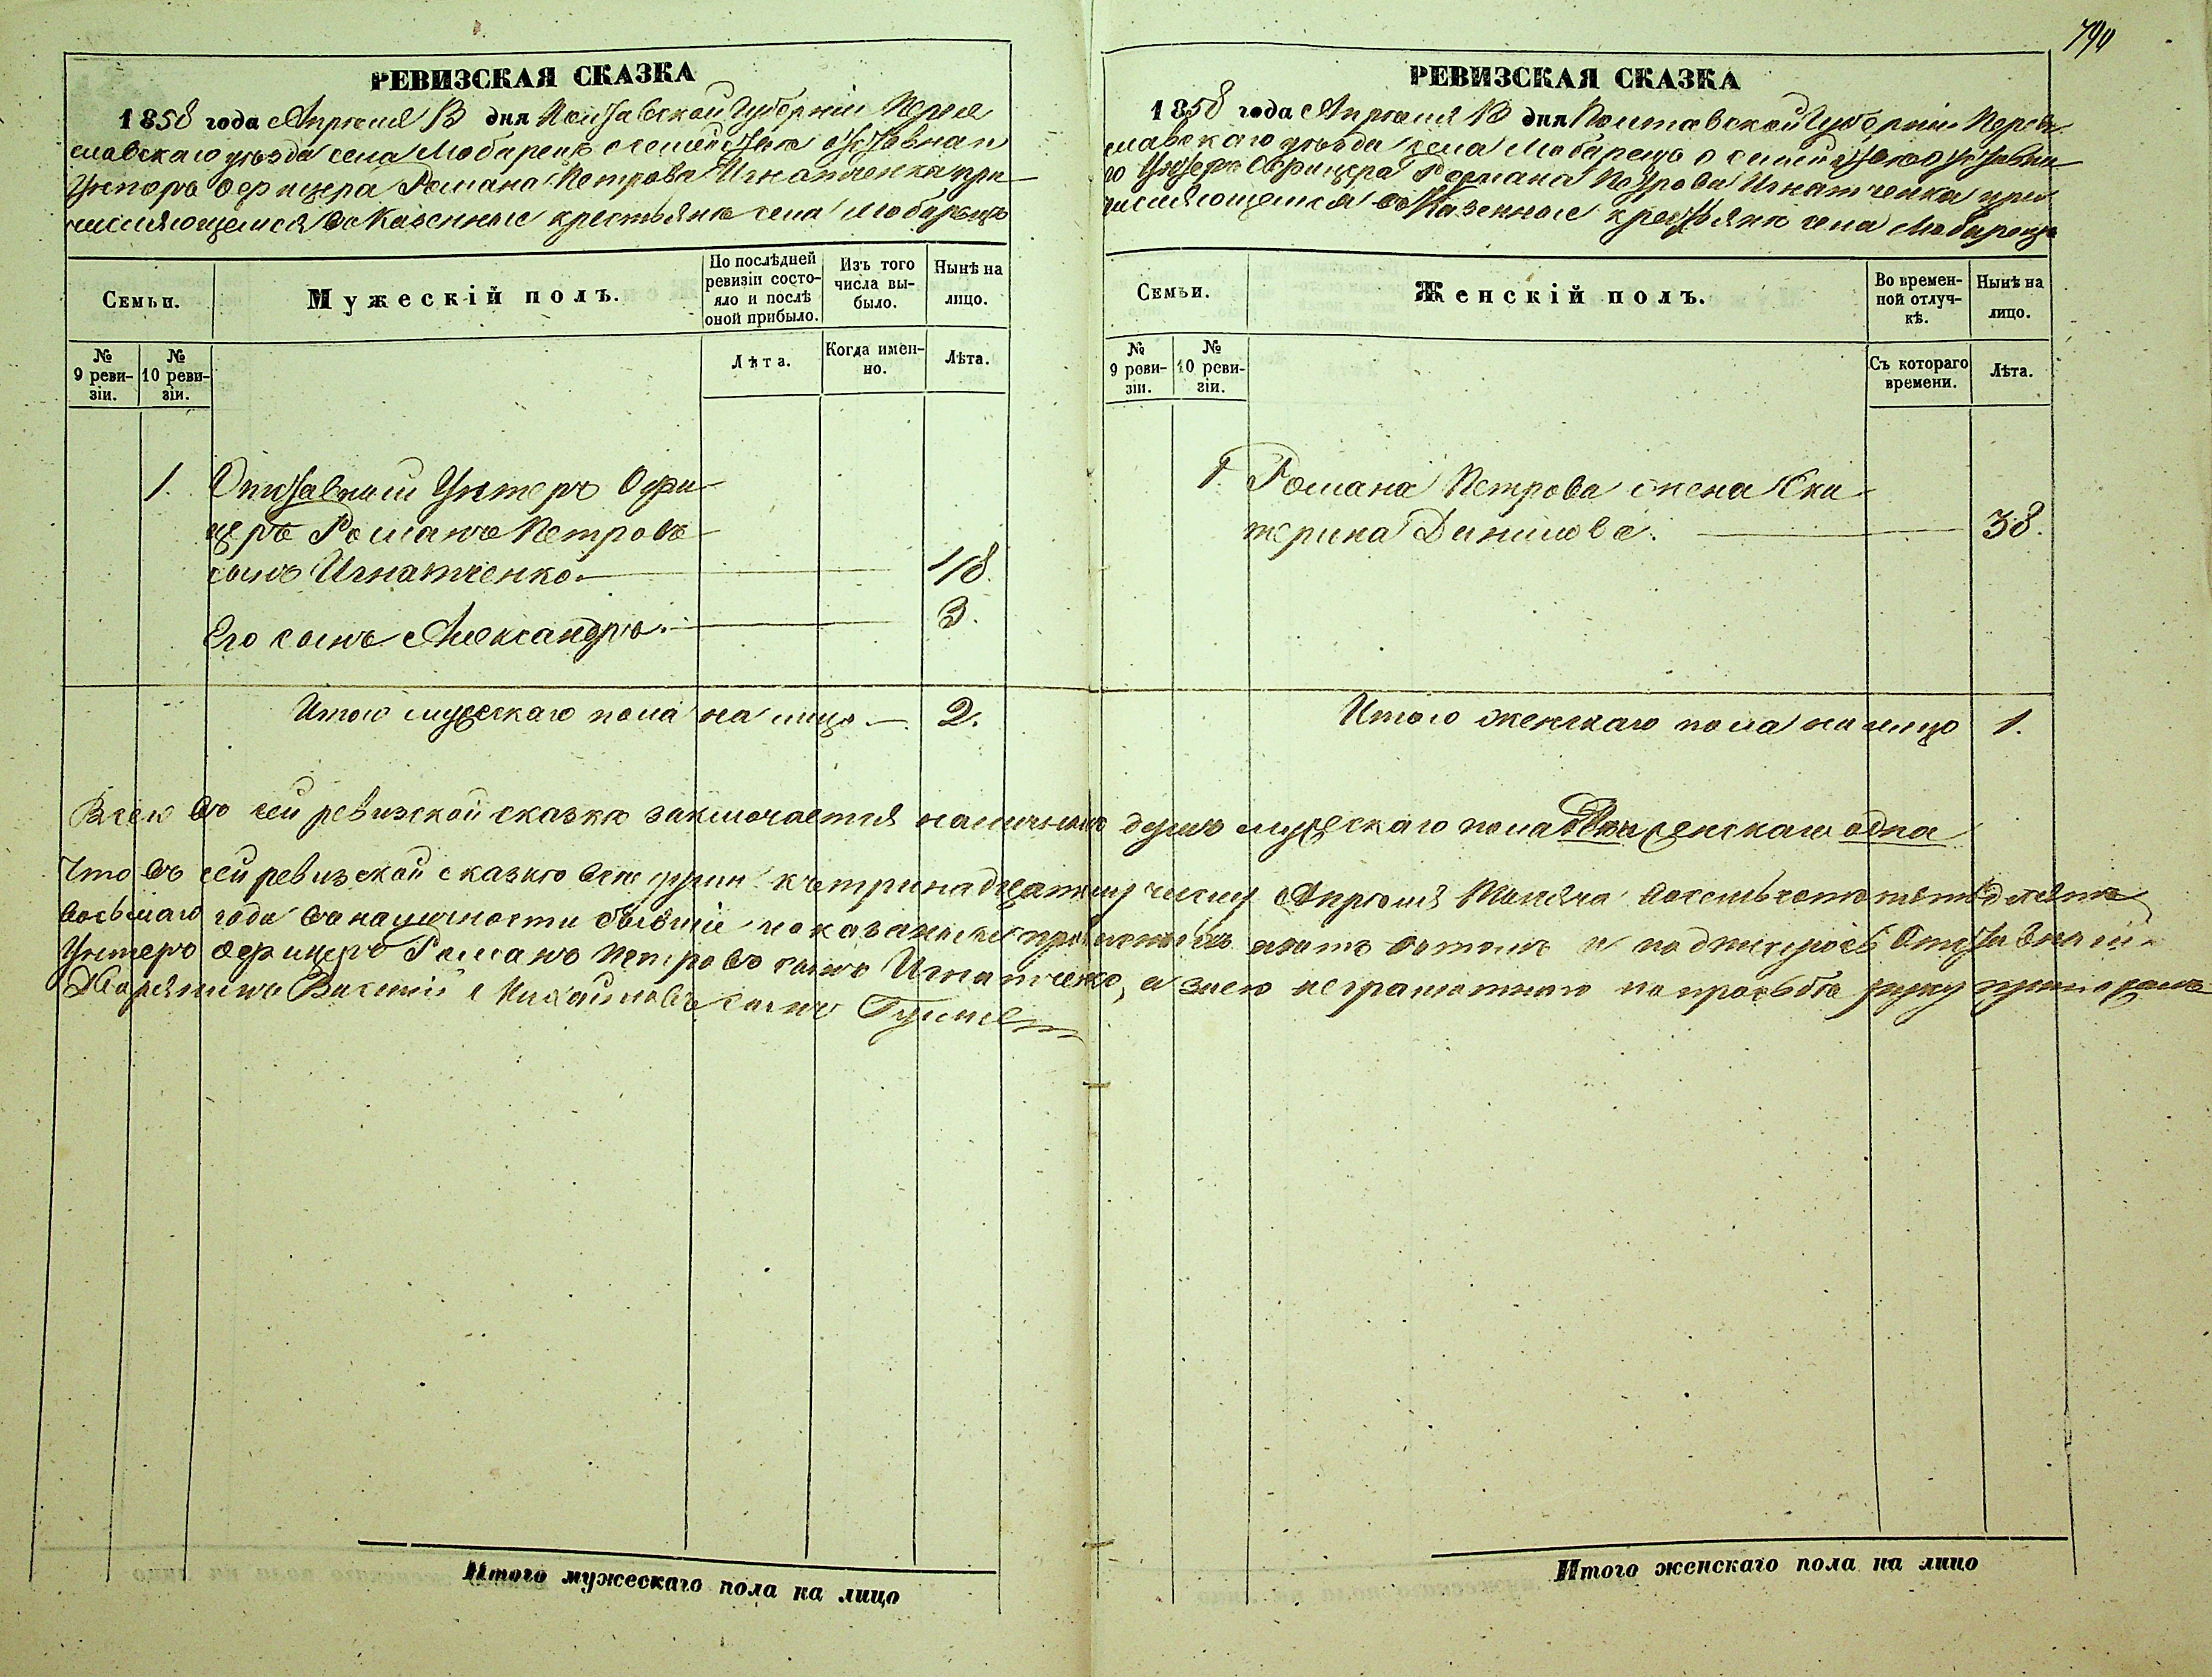 790
РЕВИЗСКАЯ СКАЗКА
1858 года Апрѣля 13 дня Полтавской Губерніи Перея
славскаго уѣзда села Любарецъ о семействѣ отставнаго
Унтеръ Офицера Романа Петрова Игнатченка при
числяющемся въ Казенные крестьяне села Любарецъ
Семьи.
Мужескій полъ.
По послѣдней ревизіи состояло и послѣ оной прибыло.
Изъ того числа выбыло.
Нынѣ на лицо.
№ 9 ревизіи.
№ 10 ревизіи.
Лѣта.
Когда именно.
Лѣта.
1. Отставный Унтеръ Офи
церъ Романъ Петровъ
сынъ Игнатченко 48.
Его сынъ Александръ. 3.
Итого мужескаго пола на лицо 2.
РЕВИЗСКАЯ СКАЗКА
1858 года Апрѣля 13 дня Полтавской Губерніи Перея
славскаго уѣзда села Любарецъ о семействѣ отставна
го Унтеръ Офицера Романа Петрова Игнатченка при
числяющемся въ Казенные крестьяне села Любарецъ
Семьи.
Женскій полъ.
Во временной отлучкѣ.
Нынѣ на лицо.
№ 9 ревизіи.
№ 10 ревизіи.
Съ котораго времени.
Лѣта.
1. Романа Петрова жена Ека
терина Данилова. 38.
Итого женскаго пола на лицо 1.
Всего въ сей ревизской сказкѣ заключается наличныхъ душъ мужескаго пола двѣ женскаго одна
Что въ сей ревизской сказкѣ всѣ души къ тринадцатому числу Апрѣля Мѣсяца восемьсотъ пятьдесятъ
восьмаго года въ наличности бывшіе показаны и прописныхъ нѣтъ въ томъ и подписуюсь Отставный
Унтеръ Офицеръ Романъ Петровъ сынъ Игнатченко, а за него неграмотнаго по просьбѣ руку приложилъ
Дворянинъ Василій Михайловъ сынъ
Итого мужескаго пола на лицо
Итого женскаго пола на лицо